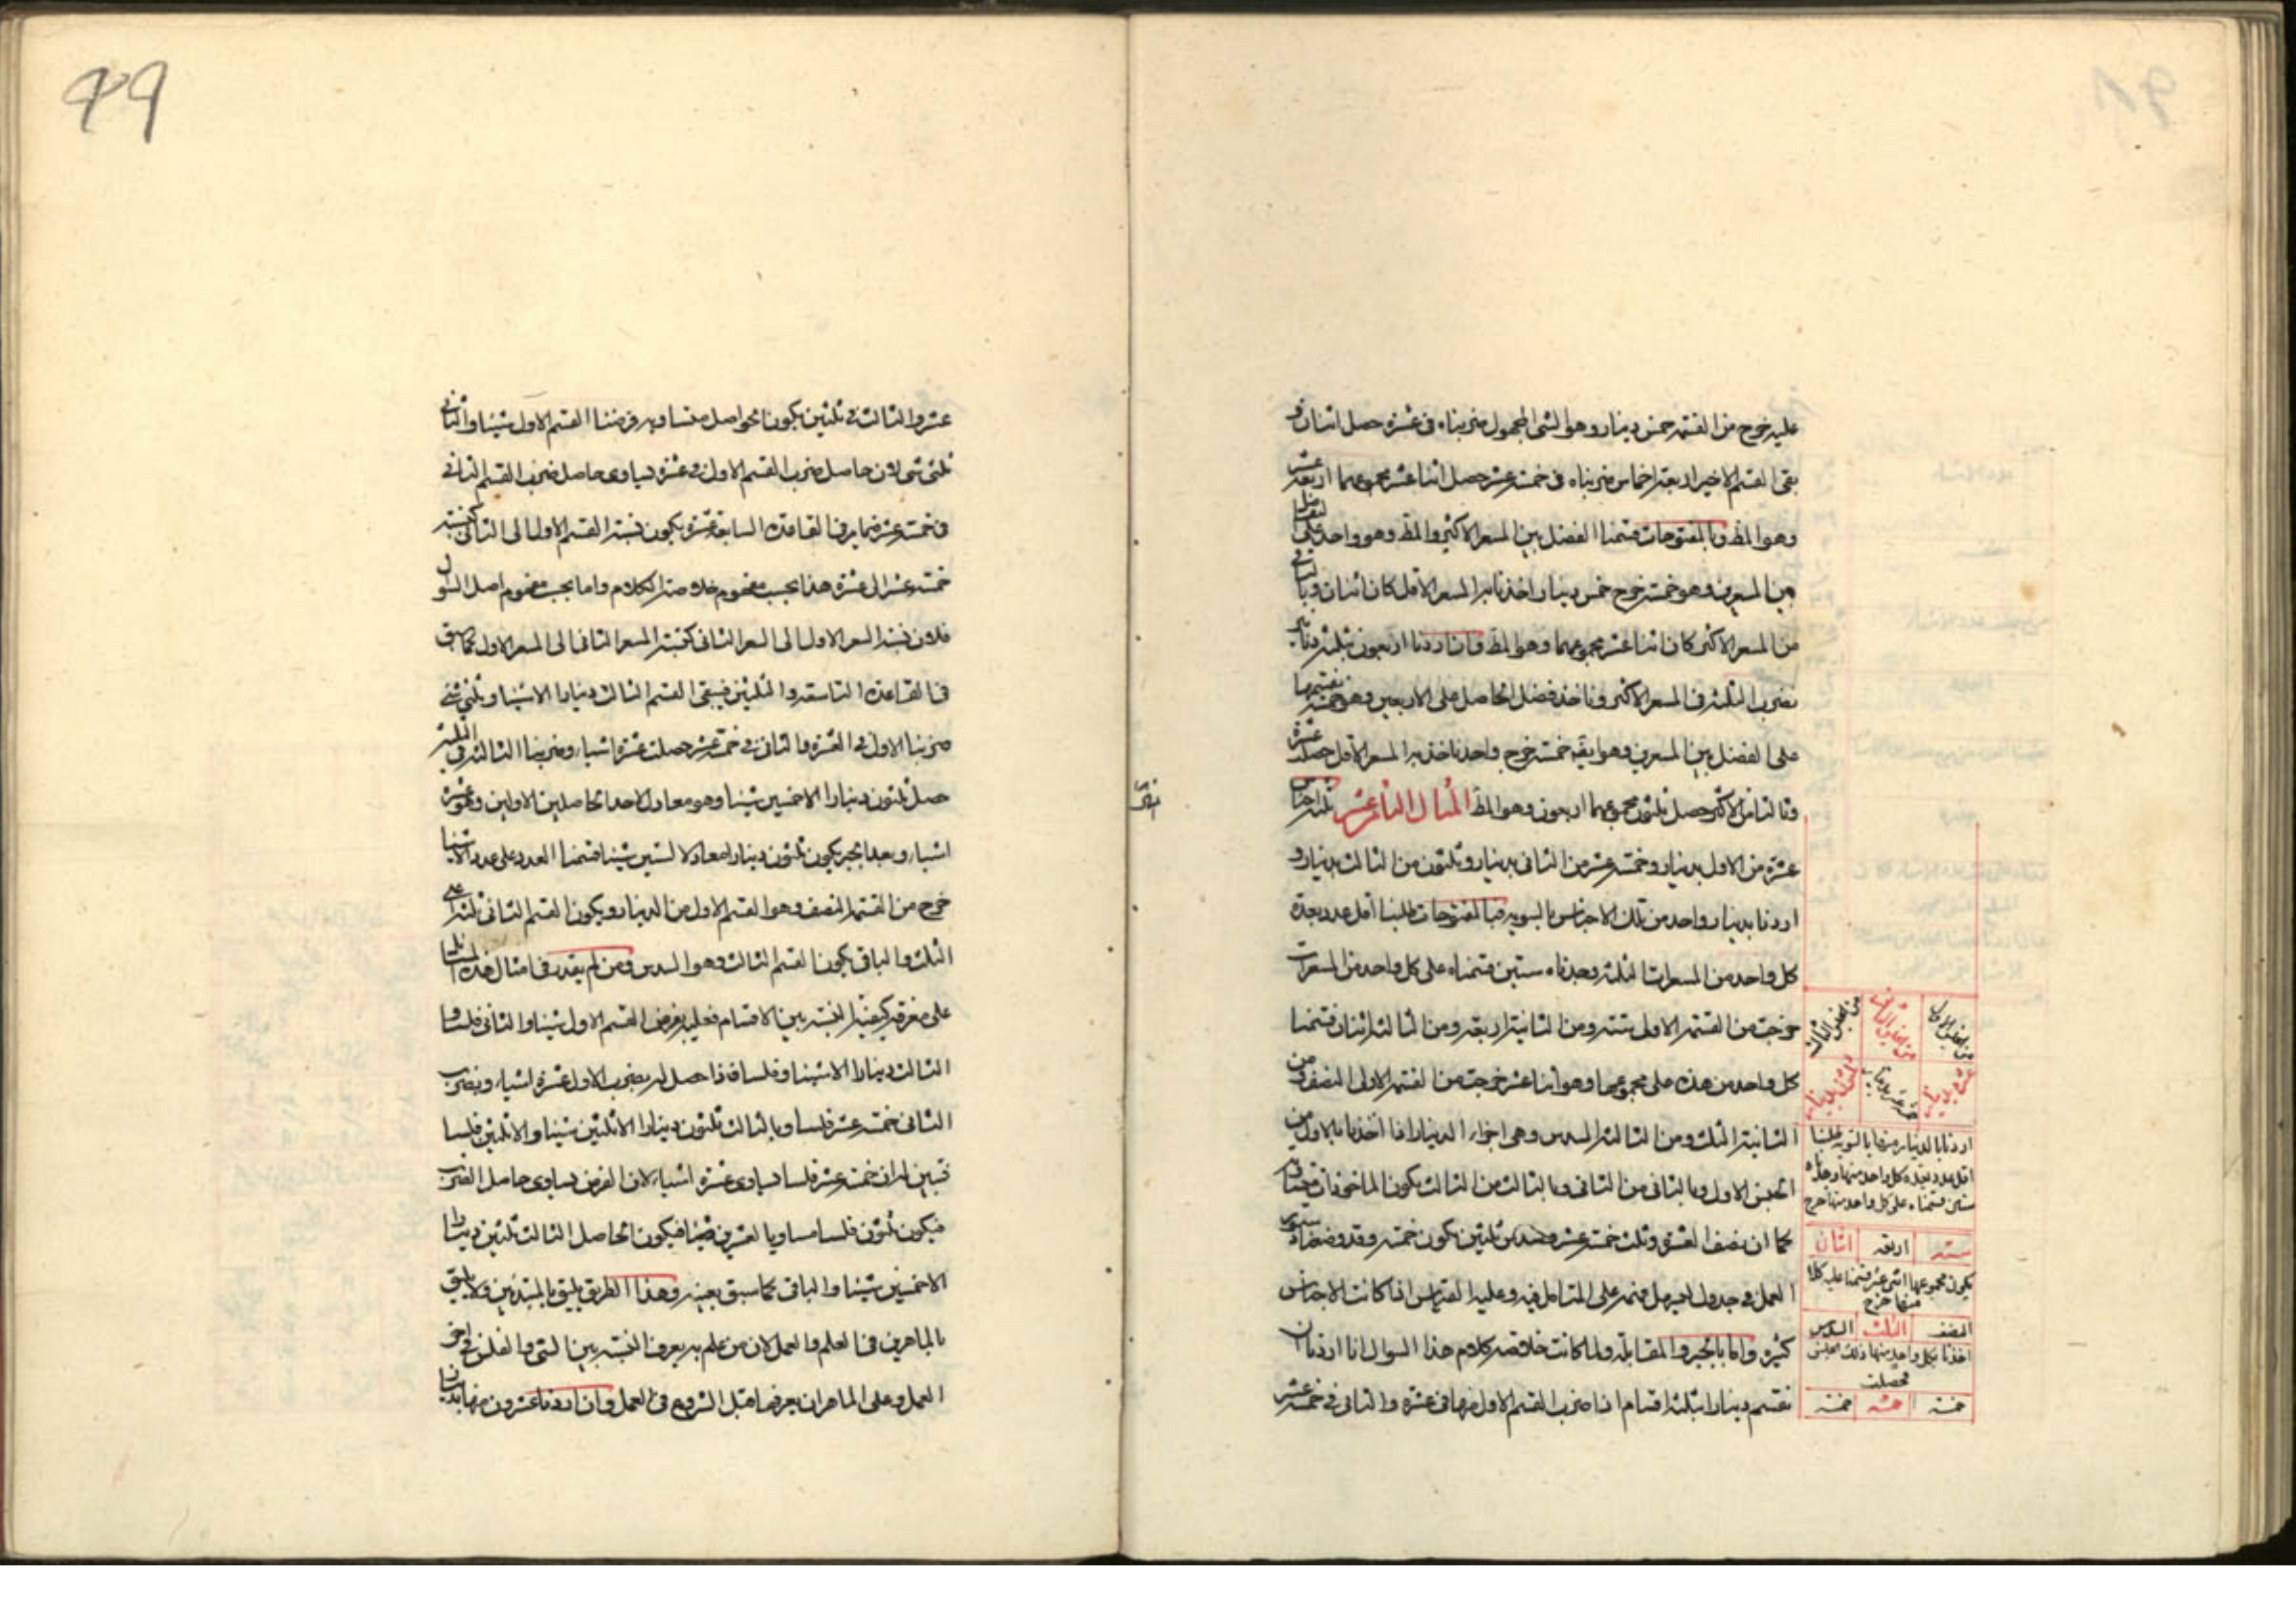 عليه خرج من القسمة خمس دينار وهو الشئ المجهول ضربناه فى عشرة حصل اثنان و
بقى القسم الاخير اربعة اخماس ضربناه فى خمسة عشر حصل اثنا عشر مجموعهما اربعة عشر
وهو المط وبالمفتوحات قسمنا الفضل بين السعر الاكثر والمط وهو واحد على الفضل
بين السعرين وهو خمسة خرج خمس دينار اخذنا به السعر الاقل كان اثنان وبالباقى
من السعر الاكثر كان اثنا عشر مجموعهما وهو المط فان اردنا اربعون بثلثة دنانير
نضرب الثلثة فى السعر الاكثر وناخذ فضل الحاصل على الاربعين وهو خمسة نقسمها
على الفضل بين السعرين وهو ايضا خمسة خرج واحد ناخذ به السعر الاقل حصلت عشرة
وبالباقى من الاكثر حصل ثلثون مجموعهما اربعون وهو المط المثال الثامن عشر ثلثة اجناس
عشرة من الاول بدينار وخمسة عشر من الثانى بدينار وثلثون من الثالث بدينار و
اردنا بدينار واحد من تلك الاجناس بالسوية فبالمفتوحات طلبنا اقل عدد يعده
كل واحد من المسعرات الثلثة وجدناه ستين قسمناه على كل واحد من المسعرات
خرجت من القسمة الاولى ستة ومن الثانية اربعة ومن الثالثة اثنان قسمنا
كل واحد من هذه على مجموعها وهو اثنا عشر خرجت من القسمة الاولى النصف ومن
الثانية الثلث ومن الثالثة السدس وهى اجزاء الدينار اذا اخذنا بالاول من
الجنس الاول وبالثانى من الثانى وبالثالث من الثالث يكون الماخوذات متساوية
كما ان نصف العشرة وثلث خمسة عشر وسدس ثلثين يكون خمسة وقد وضعنا صورة
العمل فى جدول ليسهل فهمه على المتامل فيه وعليه القياس اذا كانت الاجناس
كثيرة واما بالجبر والمقابلة ولما كانت خلاصة كلام هذا السوال انا اردنا ان
نقسم دينارا بثلثة اقسام اذا ضرب القسم الاول منها فى عشرة والثانى فى خمسة عشر
من الجنس الاول
من الجنس الثانى
من الجنس الثالث
عشرة بدينار
خمسة عشر بدينار
ثلثون بدينار
اردنا بالدينار منها بالسوية طلبنا
اقل عدد يعده كل واحد منها وجدناه
ستين قسمناه على كل واحد منها خرج
ستة اربعة اثنان
يكون مجموعها اثنى عشر قسمنا عليه كلا
منها خرج
النصف الثلث السدس
اخذنا بكل واحد منها ذلك الجنس
حصلت
خمسة خمسة خمسة
49
عشر والثالث فى ثلثين يكون الحواصل متساوية فرضنا القسم الاول شيئا والثانى
ثلثى شئ لان حاصل ضرب القسم الاول فى عشرة يساوى حاصل ضرب القسم الثانى
فى خمسة عشر فبما مر فى القاعدة السابعة عشرة يكون نسبة القسم الاول الى الثانى كنسبة
خمسة عشر الى عشرة هذا بحسب مفهوم خلاصة الكلام واما بحسب مفهوم اصل السوال
فلان نسبة السعر الاول الى السعر الثانى كنسبة السعر الثانى الى السعر الاول كما سبق
فى القاعدة التاسعة والثلثين فيبقى القسم الثالث دينارا الا شيئا وثلثى شئ
ضربنا الاول فى العشرة والثانى فى خمسة عشر حصلت عشرة اشياء وضربنا الثالث فى الثلثين
حصل ثلثون دينارا الا خمسين شيئا وهو معادل لاحد الحاصلين الاولين وهو عشرة
اشياء وبعد الجبر يكون ثلثون دينارا معادلا لستين شيئا قسمنا العدد على عدد الاشياء
خرج من القسمة النصف وهو القسم الاول من الدينار ويكون القسم الثانى ثلثيه اعنى
الثلث والباقى يكون القسم الثالث وهو السدس ومن لم يقدر فى امثال هذه المسائل
على معرفة كيفية النسبة بين الاقسام فعليه بفرض القسم الاول شيئا والثانى فلسا و
الثالث دينارا الا شيئا وفلسا فاذا حصل له بضرب الاول عشرة اشياء وبضرب
الثانى خمسة عشر فلسا وبالثالث ثلثون دينارا الا ثلثين شيئا والا ثلثين فلسا
تبين له ان خمسة عشر فلسا يساوى عشرة اشياء لان الفرض تساوى حاصل الضرب
فيكون ثلثون فلسا مساويا لعشرين شيئا فيكون الحاصل الثالث ثلثين دينارا
الا خمسين شيئا والباقى كما سبق بعينه وهذا الطريق يليق بالمبتدئين ولا يليق
بالماهرين فى العلم والعمل لان من علم به يعرف النسبة بين الشئ والفلس فى اخر
العمل وعلى الماهر ان يعرفها قبل الشروع فى العمل وان اردنا عشرون منها بدينار